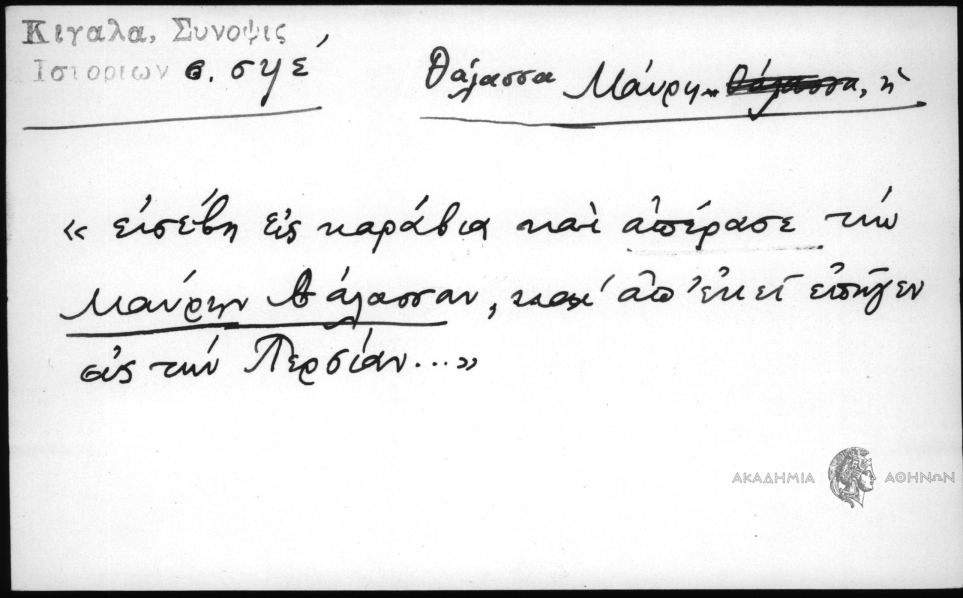 Κιγαλα, Συνοψις
Ιστοριων σ. σηέ
θάλασσα Μαύρη, ~~θάλασσα~~, ἡ
« εἰσέβη εἰς καράβια καὶ ἀπέρασε τὴν
Μαύρην θάλασσαν, καὶ ἀπ' ἐκεῖ ἐπῆγεν
εἰς τὴν Περσίαν...»
ΑΚΑΔΗΜΙΑ ΑΘΗΝΩΝ